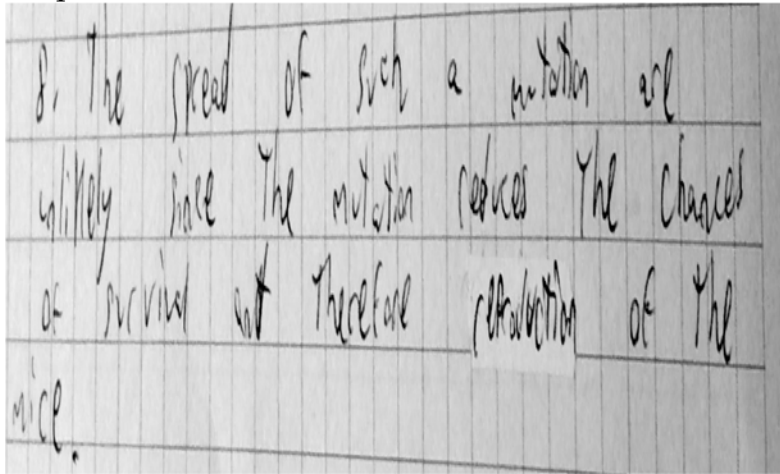 8. The spread of such a mutation are
unlikely since the mutation reduces the chances
of survival and therefore reproduction of the
mice.